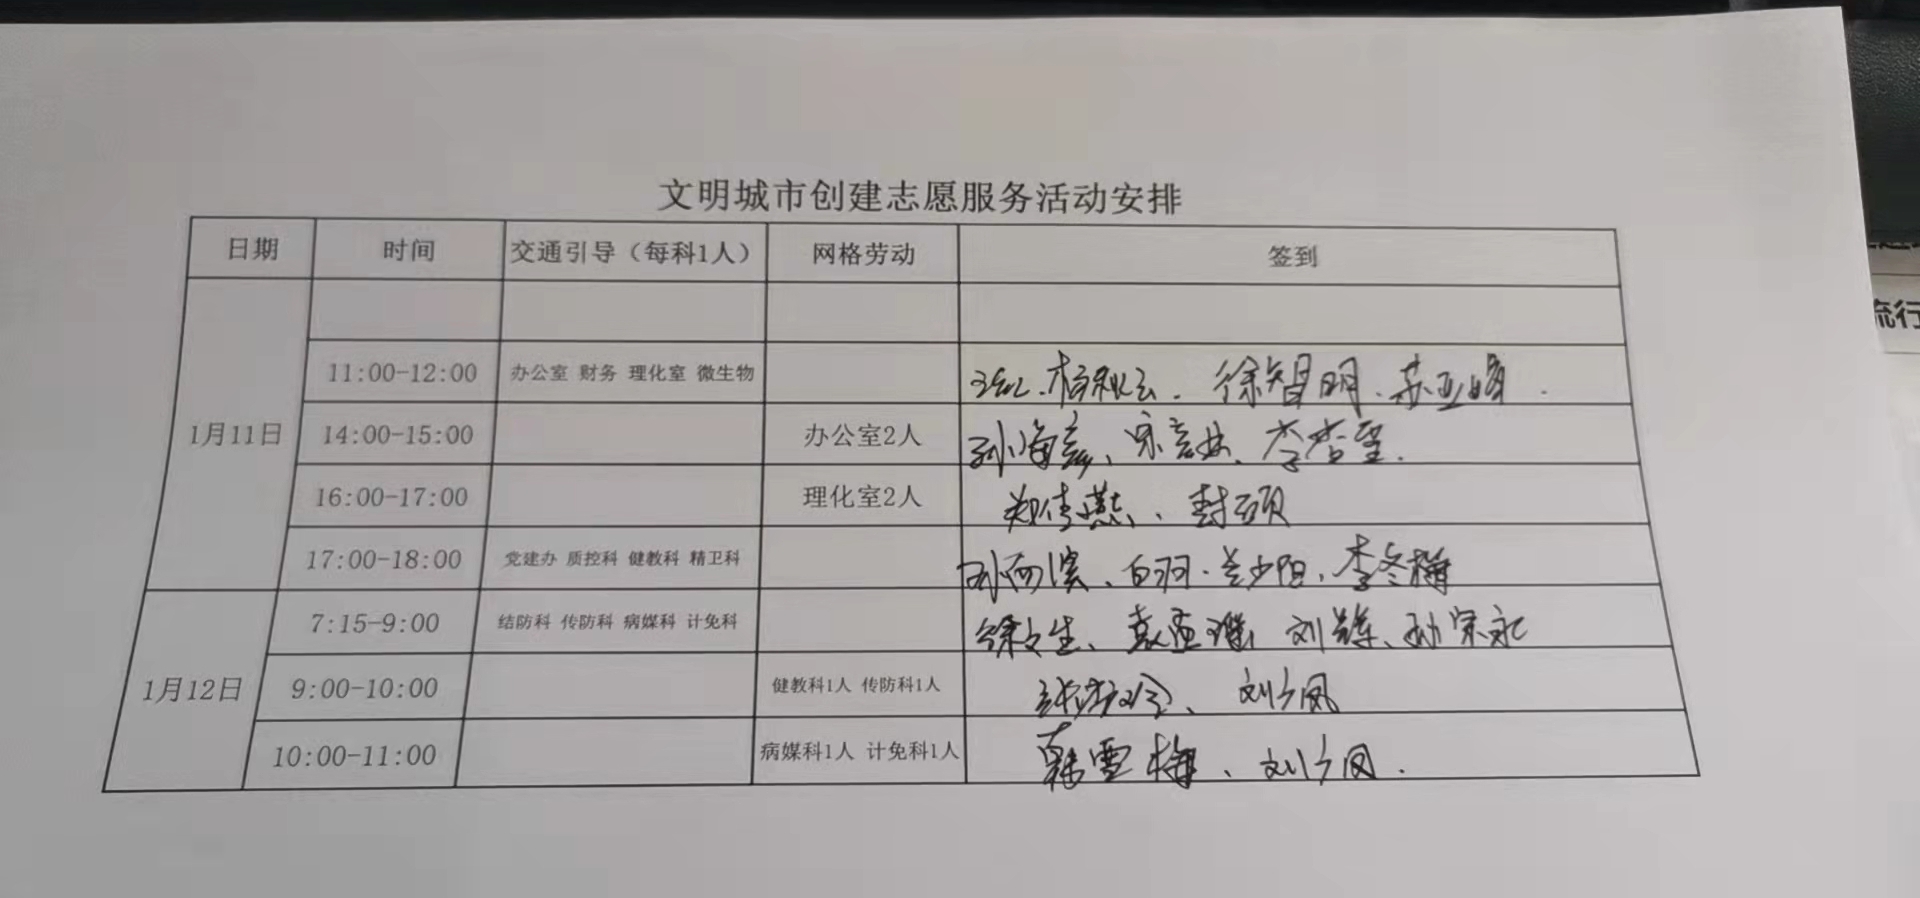 文明城市创建志愿服务活动安排
日期 时间 交通引导（每科1人） 网格劳动 签到
11:00-12:00 办公室 财务 理化室 微生物 徐智明、苏亚峰.
1月11日 14:00-15:00 办公室2人 孙海彦、
16:00-17:00 理化室2人 郑佳燕、封硕
17:00-18:00 党建办 质控科 健教科 精卫科 白羽. 李冬梅
7:15-9:00 结防科 传防科 病媒科 计免科 徐文生、袁亚璠、孙宗永
1月12日 9:00-10:00 健教科1人 传防科1人
10:00-11:00 病媒科1人 计免科1人 韩雪梅、
流行